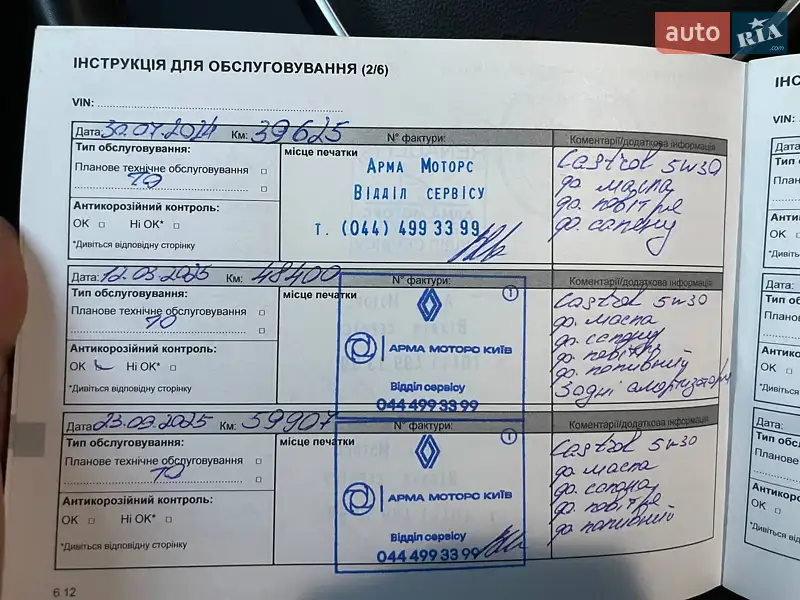 auto RIA.com
ІНСТРУКЦІЯ ДЛЯ ОБСЛУГОВУВАННЯ (2/6)
VIN:
Дата: 30.07.2024 Км: 39625 N° фактури: Коментарі/додаткова інформація
Тип обслуговування:
Планове технічне обслуговування
ТО
Антикорозійний контроль:
ОК Ні ОК*
*Дивіться відповідну сторінку
місце печатки
Арма Моторс
Відділ сервісу
т. (044) 499 33 99
Castrol 5w30
ф. масла
ф. повітря
ф. салону
Дата: 12.03.2025 Км: 48400 N° фактури: Коментарі/додаткова інформація
Тип обслуговування:
Планове технічне обслуговування
ТО
Антикорозійний контроль:
ОК Ні ОК*
*Дивіться відповідну сторінку
місце печатки
1
АРМА МОТОРС КИЇВ
Відділ сервісу
044 499 33 99
Castrol 5w30
ф. масла
ф. салону
ф. повітря
ф. паливний
Задні амортизатори
Дата: 23.09.2025 Км: 59907 N° фактури: Коментарі/додаткова інформація
Тип обслуговування:
Планове технічне обслуговування
ТО
Антикорозійний контроль:
ОК Ні ОК*
*Дивіться відповідну сторінку
місце печатки
1
АРМА МОТОРС КИЇВ
Відділ сервісу
044 499 33 99
Castrol 5w30
ф. масла
ф. салону
ф. повітря
ф. паливний
6.12
ІНС
VIN:
Дата:
Тип об
Планов
Антико
ОК
*Дивіть
Дата:
Тип об
Планов
Антико
ОК
*Дивіть
Дата:
Тип обсл
Планове
Антикор
ОК
*Дивіться